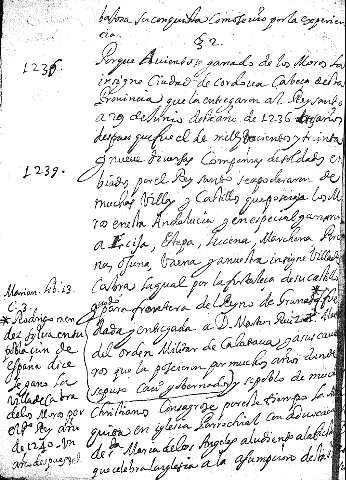 batosa su conquista como se vio por la experien
cia.
§ 2.
1236. Porque aviendose ganado de los Moros la
insigne Ciudad de Cordova Cabeça desta
Provincia que la entregaron al Rey santo
a 29 de Junio deste año de 1236 tres años
despues que fue el de mil y docientos y treinta
1239. y nueve diversas Compañias de soldados en
biados por el Rey santo se apoderaron de
muchas Villas y Castillos que poseian los Mo
ros en esta Andalucia y en especial ganaron
a Ecija, Estepa, Lucena, Marchena, Porcu
na, Osuna, Vaena y a nuestra insigne Villa de
Cabra la qual por la fortaleza de su castillo
quedo para frontera del Reyno de Granada y fue
dada y entregada a D. Martin Ruiz
del orden Militar de Calatrava y a sus cavalle
ros que la poseieron por muchos años
seguro y se poblo de muchos
Christianos Consagrose por este tiempo la Mez
quita en iglesia Parrochial con advocacion
de Sta. Maria de los Angeles aludiendo a la fiesta
que celebra la iglesia a la asumpcion de
Marian. lib. 13
C. 3
* Rodrigo men
dez sylva en su
poblacion de
España dice
se gano la
Villa de Cabra
de los Moros por
el Rey año
de 1240. Un
año despues